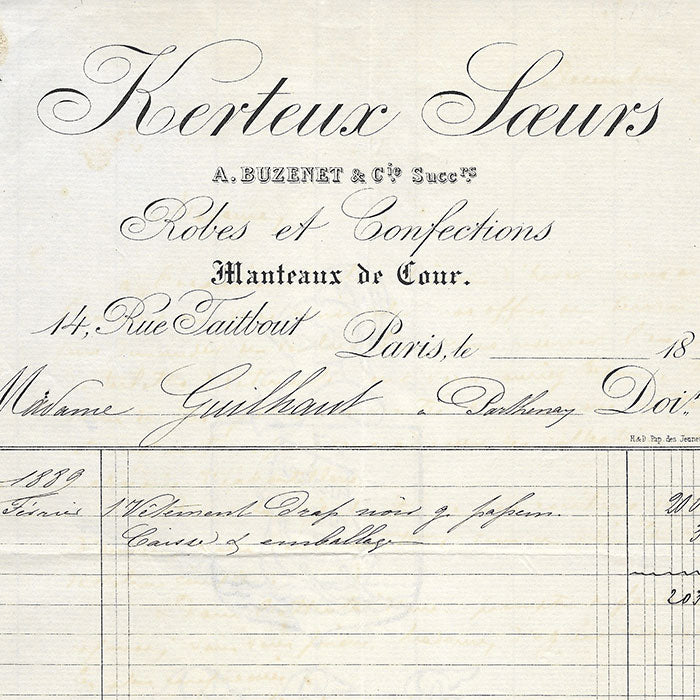 Kerteux Sœurs
A. BUZENET & Cie Succrs
Robes et Confections
Manteaux de Cour.
14, Rue Taitbout
Paris, le 18
Madame Guilhaut à Parthenay Doit
H&D Pap. des Jeune
1889
Février 1 Vêtement drap noir g. passem. 200
Caisse & emballage 3
203